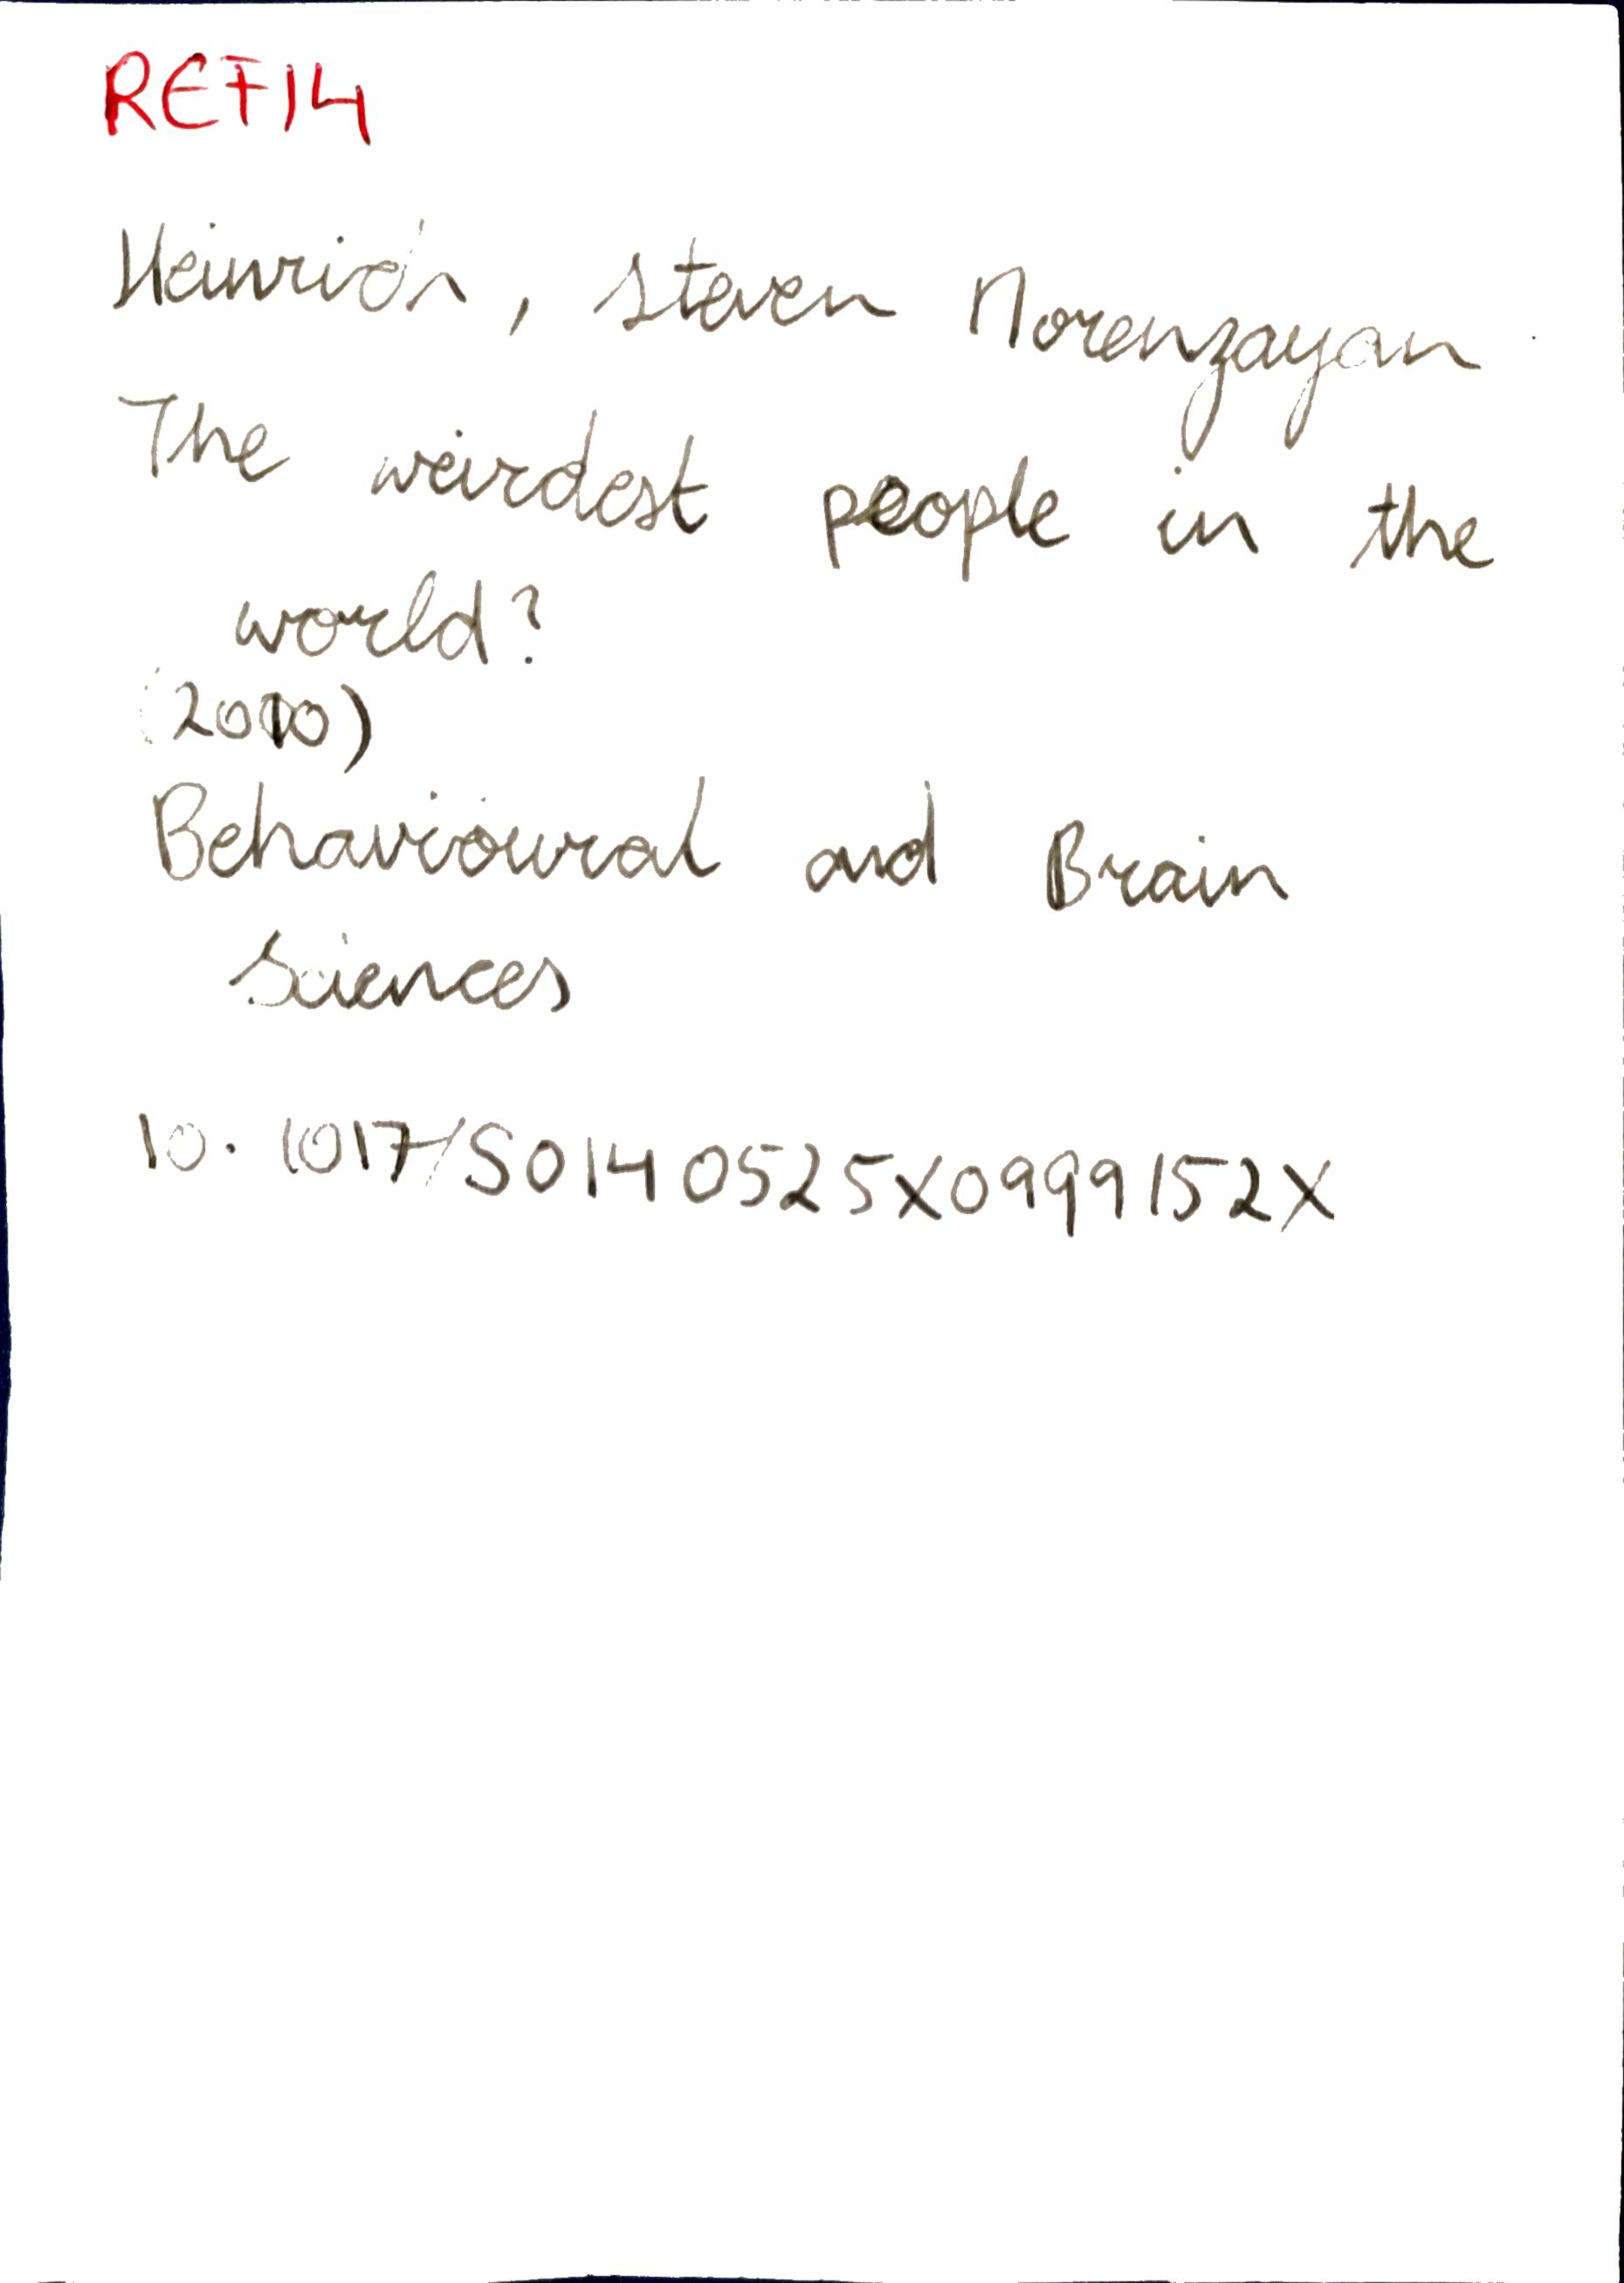 REF14
Heinrich, Steven Norenzayan
The weirdest people in the
world?
(2010)
Behavioural and Brain
Sciences
10.1017/S0140525X0999152X